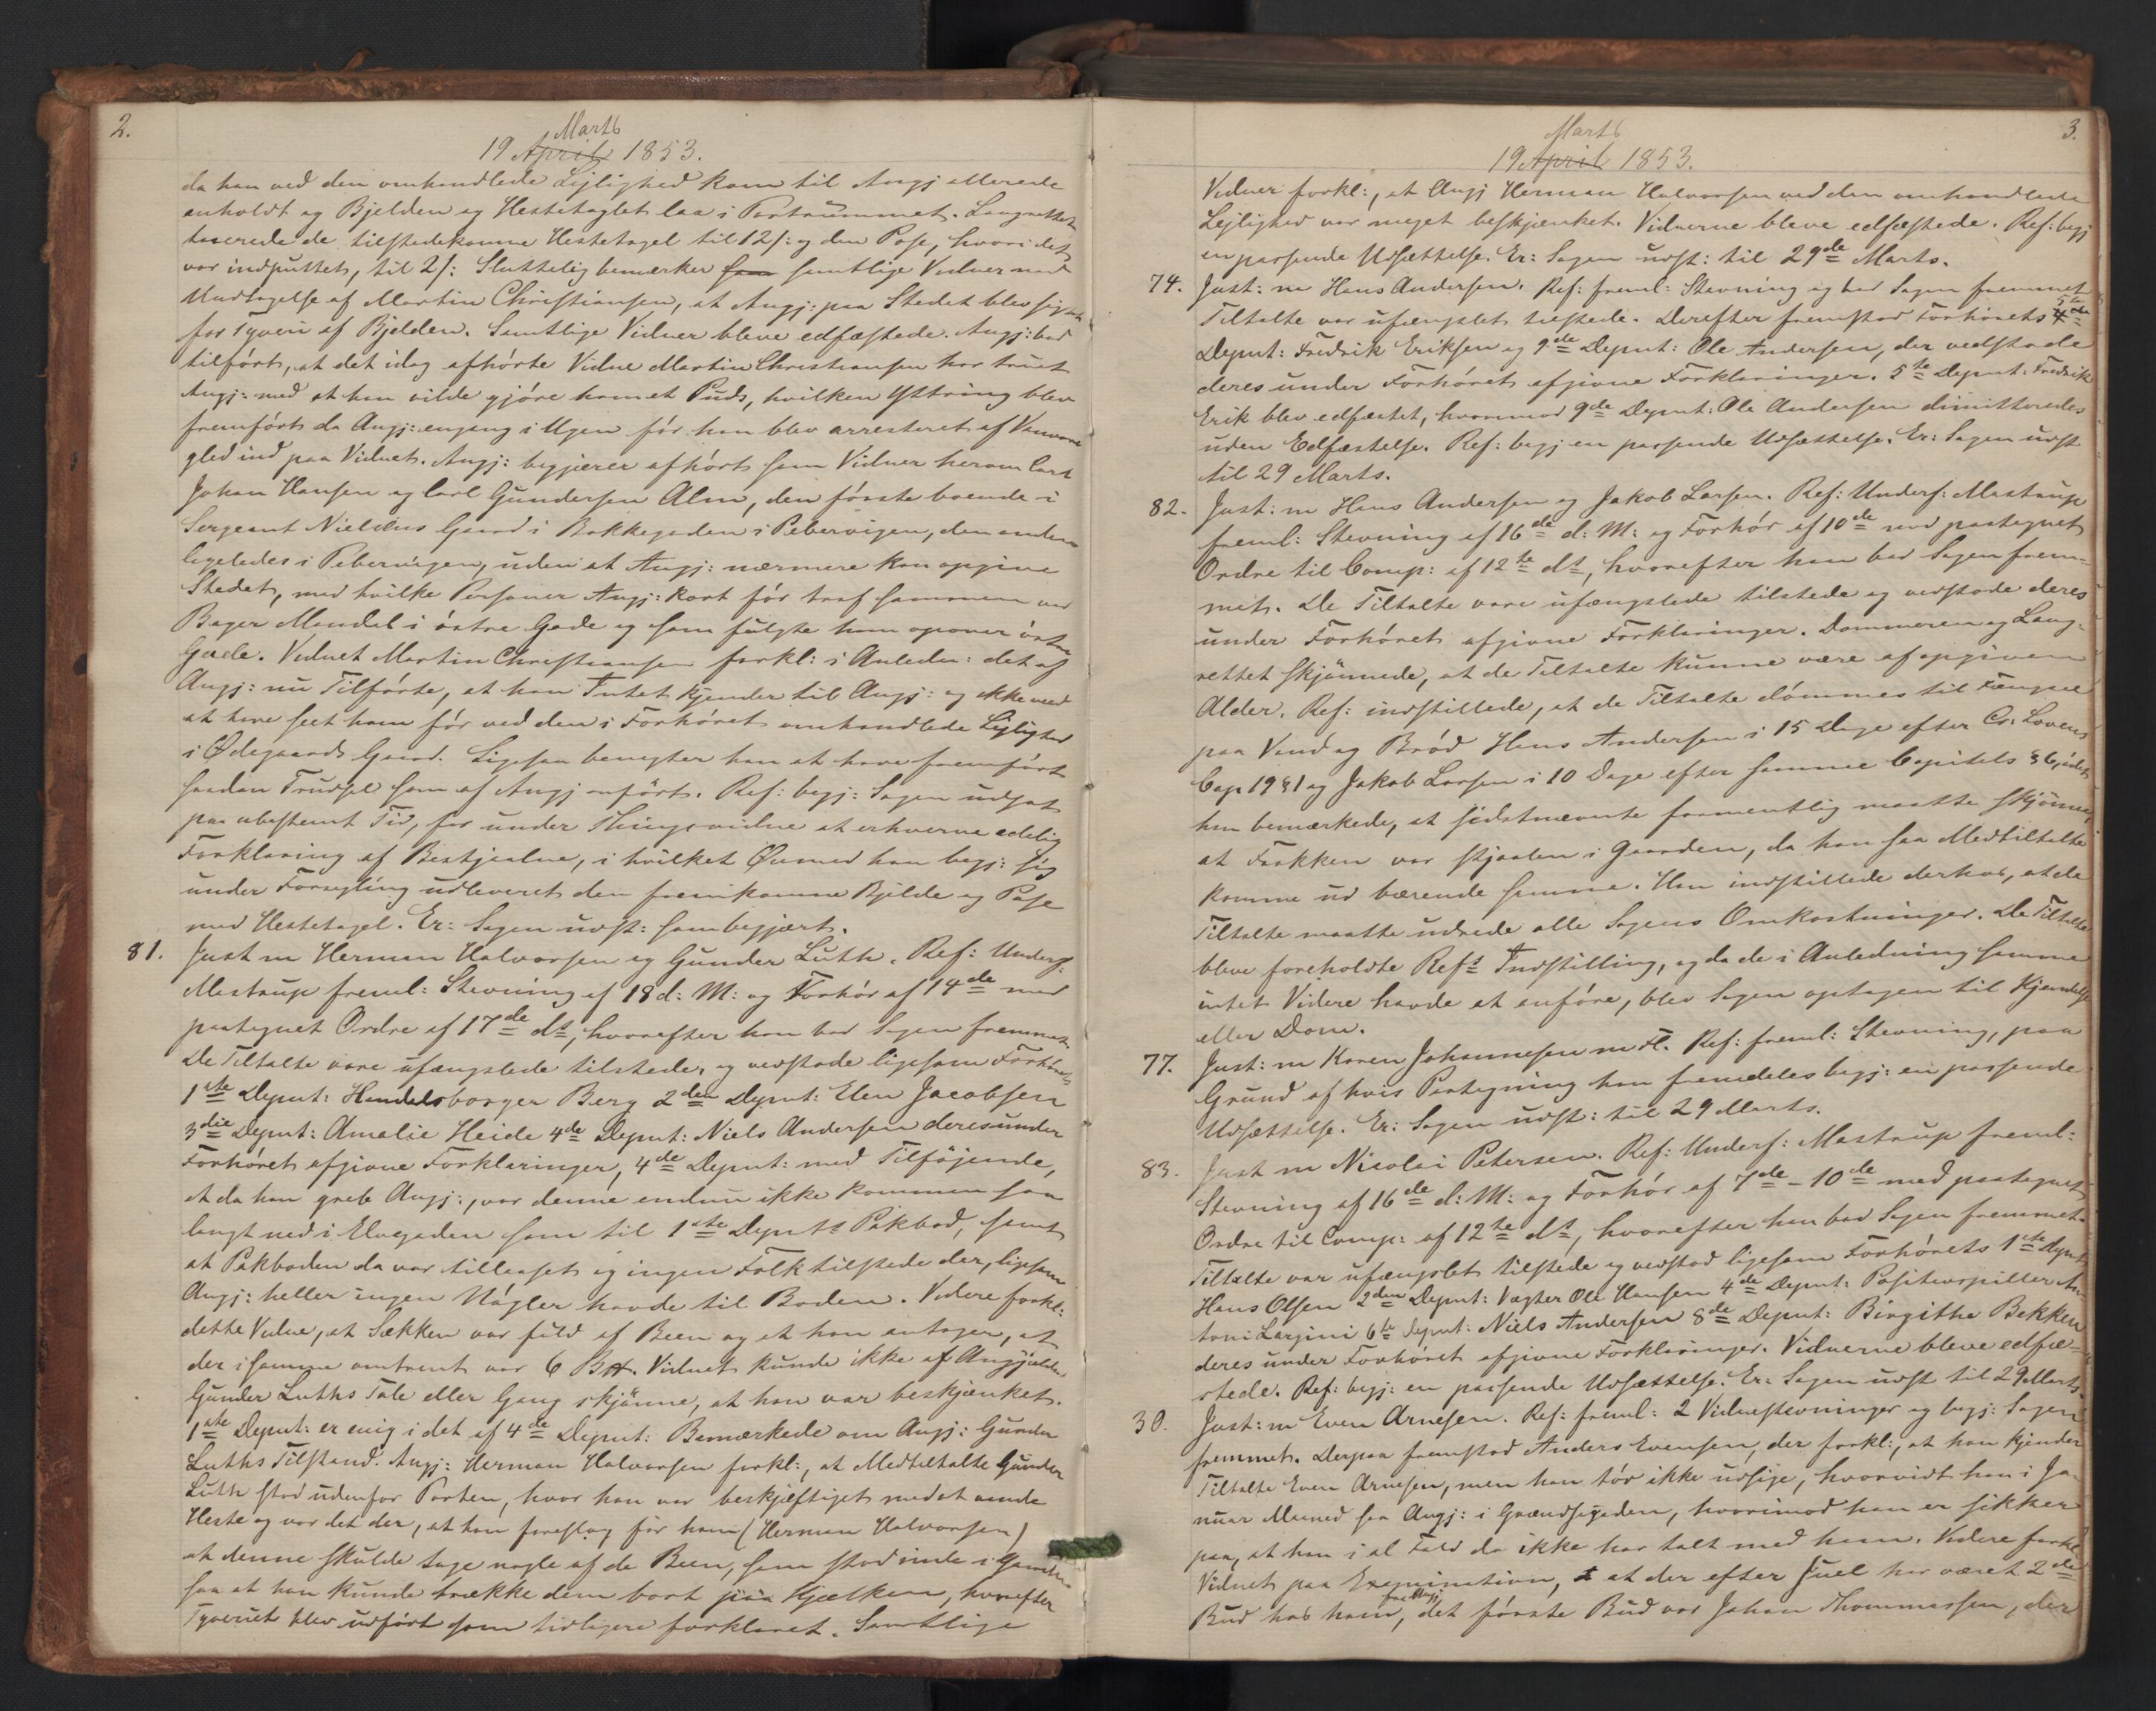 2.
Marts
19 April 1853.
da han ved den omhandlede Lejlighed kom til Angj allerede
anholdt og Bjelden og Hestetaglet laa i Portrummet. Laugrettet
taxerede de tilstedekomne Hestetagel til 12 s: og den Pose, hvori det
var indputtet, til 2 s: Sluttelig bemærker som samtlige Vidner med
Undtagelse af Martin Christiansen, at Angj: paa Stedet blev sigtet
for Tyveri af Bjelden. Samtlige Vidner bleve edfæstede. Angj: bad
tilført, at det idag afhørte Vidne Martin Christiansen har truet
Angj: med at han vilde gjøre ham et Puds, hvilken Yttring blev
fremført da Angj: engang i Ugen før han blev arresteret af Vanvare
gled ind paa Vidnet. Angj: begjærer afhørt som Vidner herom Carl
Johan Hansen og Carl Gundersen Alm, den første boende i
Sergeant Nielsens Gaard i Bakkegaden i Pebervigen, den anden
ligeledes i Pebervigen, uden at Angj: nærmere kan opgive
Stedet, med hvilke Personer Angj: kort før traf sammen ved
Bager Mandal i østre Gade og som fulgte ham opover østre
Gade. Vidnet Martin Christiansen forkl: i Anledn: det af
Angj: nu Tilførte, at han Intet kjender til Angj: og ikke veed
at have seet ham før ved den i Forhøret omhandlede Lejlighed
i Ødegaards Gaard. Ligesaa benegter han at have fremført
saadan Trudsel som af Angj anført. Ref: begj: Sagen udsat
paa ubestemt Tid, for under Thingsvidne at erhverve edelig
Forklaring af Bestjaalne, i hvilket Øiemed han begj: sig
under Forsegling udleveret den fremkomne Bjelde og Pose
med Hestetagel. Er: Sagen udst: som begjært.
81. Just m Herman Halvorsen og Gunder Luth. Ref: Underf:
Mastrup freml: Stevning af 18 d: M: og Forhør af 14de med
paategnet Ordre af 17de ds, hvorefter han bad Sagen fremmet.
De Tiltalte vare ufængslede tilstede og vedstode ligesom Forhørets
1ste Deput: Handelsborger Berg 2den Deput: Elen Jacobsen
3die Deput: Amalie Heide 4de Deput: Niels Andersen deres under
Forhøret afgivne Forklaringer, 4de Deput: med Tilføjende,
at da han greb Angj:, var denne endnu ikke kommen saa
langt ned i Elvegaden som til 1ste Deputs Pakbod, samt
at Pakboden da var tillaaset og ingen Folk tilstede der, ligesom
Angj: heller ingen Nøgler havde til Boden. Videre forkl:
dette Vidne, at Sækken var fuld af Been og at han antager, at
der i samme omtrent var 6 B. Vidnet kunde ikke af Angjældende
Gunder Luths Tale eller Gang skjønne, at han var beskjænket.
1ste Deput: er enig i det af 4de Deput: Bemærkede om Angj: Gunder
Luths Tilstand. Angj: Herman Halvorsen forkl:, at Medtiltalte Gunder
Luth stod udenfor Porten, hvor han var beskjæftiget med at vande
Heste og var det der, at han foreslog for ham (Herman Halvorsen)
at denne skulde tage nogle af de Been, som stod inde i Gaarden
saa at han kunde trække dem bort paa Kjælken, hvorefter
Tyveriet blev udført som tidligere forklaret. Samtlige
3.
Marts
19 April 1853.
Vidner forkl:, at Angj Herman Halvorsen ved den omhandlede
Lejlighed var meget beskjænket. Vidnerne bleve edfæstede. Ref: begj
en passende Udsættelse. Er: Sagen udst: til 29de Marts.
74. Just: m Hans Andersen. Ref: freml: Stevning og bad Sagen fremmet
Tiltalte var ufængslet tilstede. Derefter fremstod Forhørets 5te
Deput: Fredrik Eriksen og 9de Deput: Ole Andersen, der vedstode
deres under Forhøret afgivne Forklaringer. 5te Deput: Fredrik
Erik blev edfæstet, hvorimod 9de Deput: Ole Andersen dimitteredes
uden Edfæstelse. Ref: begj en passende Udsættelse. Er: Sagen udst
til 29 Marts.
82. Just: m Hans Andersen og Jakob Larsen. Ref: Underf: Mastrup
freml: Stevning af 16de d: M: og Forhør af 10de med paategnet
Ordre til Comp: af 12te ds, hvorefter han bad Sagen frem-
met. De Tiltalte vare ufængslede tilstede og vedstode deres
under Forhøret afgivne Forklaringer. Dommeren og Laug-
rettet skjønnede, at de Tiltalte kunne være af opgiven
Alder. Ref: indstillede, at de Tiltalte dømmes til Fængsel
paa Vand og Brød Hans Andersen i 15 Dage efter Cr: Lovens
Cap 19 § 1 og Jakob Larsen i 10 Dage efter samme Capitels § 6, idet
han bemærkede, at sidstnævnte formentlig maatte skjønne,
at Frakken var stjaalen i Gaarden, da han saa Medtiltalte
komme ud bærende samme. Han indstillede derhos, at de
Tiltalte maatte udrede alle Sagens Omkostninger. De Tiltalte
bleve foreholdte Refs Indstilling, og da de i Anledning samme
intet Videre havde at anføre, blev Sagen optagen til Kjendelse
eller Dom.
77. Just: m Karen Johannesen m Fl. Ref: freml: Stevning, paa
Grund af hvis Paategning han fremdeles begj: en passende
Udsættelse. Er: Sagen udst: til 29 Marts.
83. Just m Nicolai Petersen. Ref: Underf: Mastrup freml:
Stevning af 16de d: M: og Forhør af 7de - 10de med paategnet
Ordre til Comp: af 12te ds, hvorefter han bad Sagen fremmet.
Tiltalte var ufængslet tilstede og vedstod ligesom Forhørets 1ste Deput:
Hans Olsen 2den Deput: Vægter Ole Hansen 4de Deput: Positivspiller An-
toni Largini 6te Deput: Niels Andersen 8de Deput: Birgitha Bekken
deres under Forhøret afgivne Forklaringer. Vidnerne bleve edfæ-
stede. Ref: begj: en passende Udsættelse. Er: Sagen udst til 29 Marts.
30. Just: m Even Arnesen. Ref: freml: 2 Vidnestevninger og begj: Sagen
fremmet. Derpaa fremstod Anders Evensen, der forkl:, at han kjender
Tiltalte Even Arnesen, men han tør ikke udsige, hvorvidt han i Ja-
nuar Maaned saa Angj: i Grændsegaden, hvorimod han er sikker
paa, at han i al Fald da ikke har talt med ham. Videre forkl
Vidnet paa Examination, at der efter Juel har været 2de
Bud hos ham, fra Angj det første Bud var Johan Thommassen, der